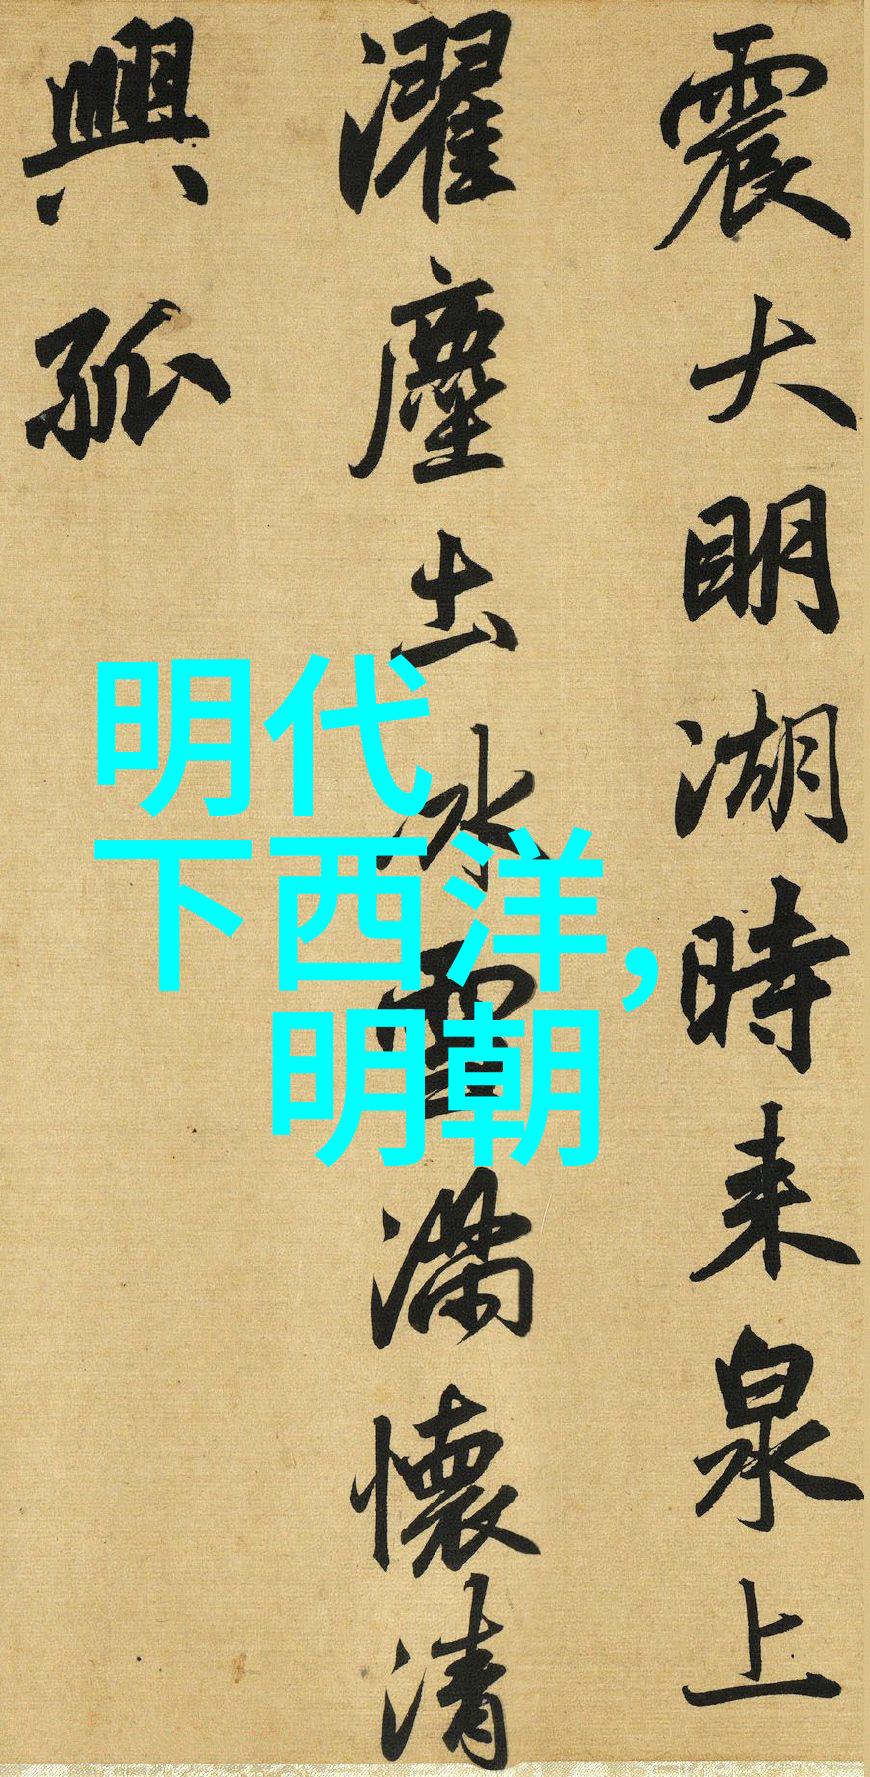 震大明湖時来泉上
濯塵土冰雪滿懷清
興孤
明代
下西洋,
明朝